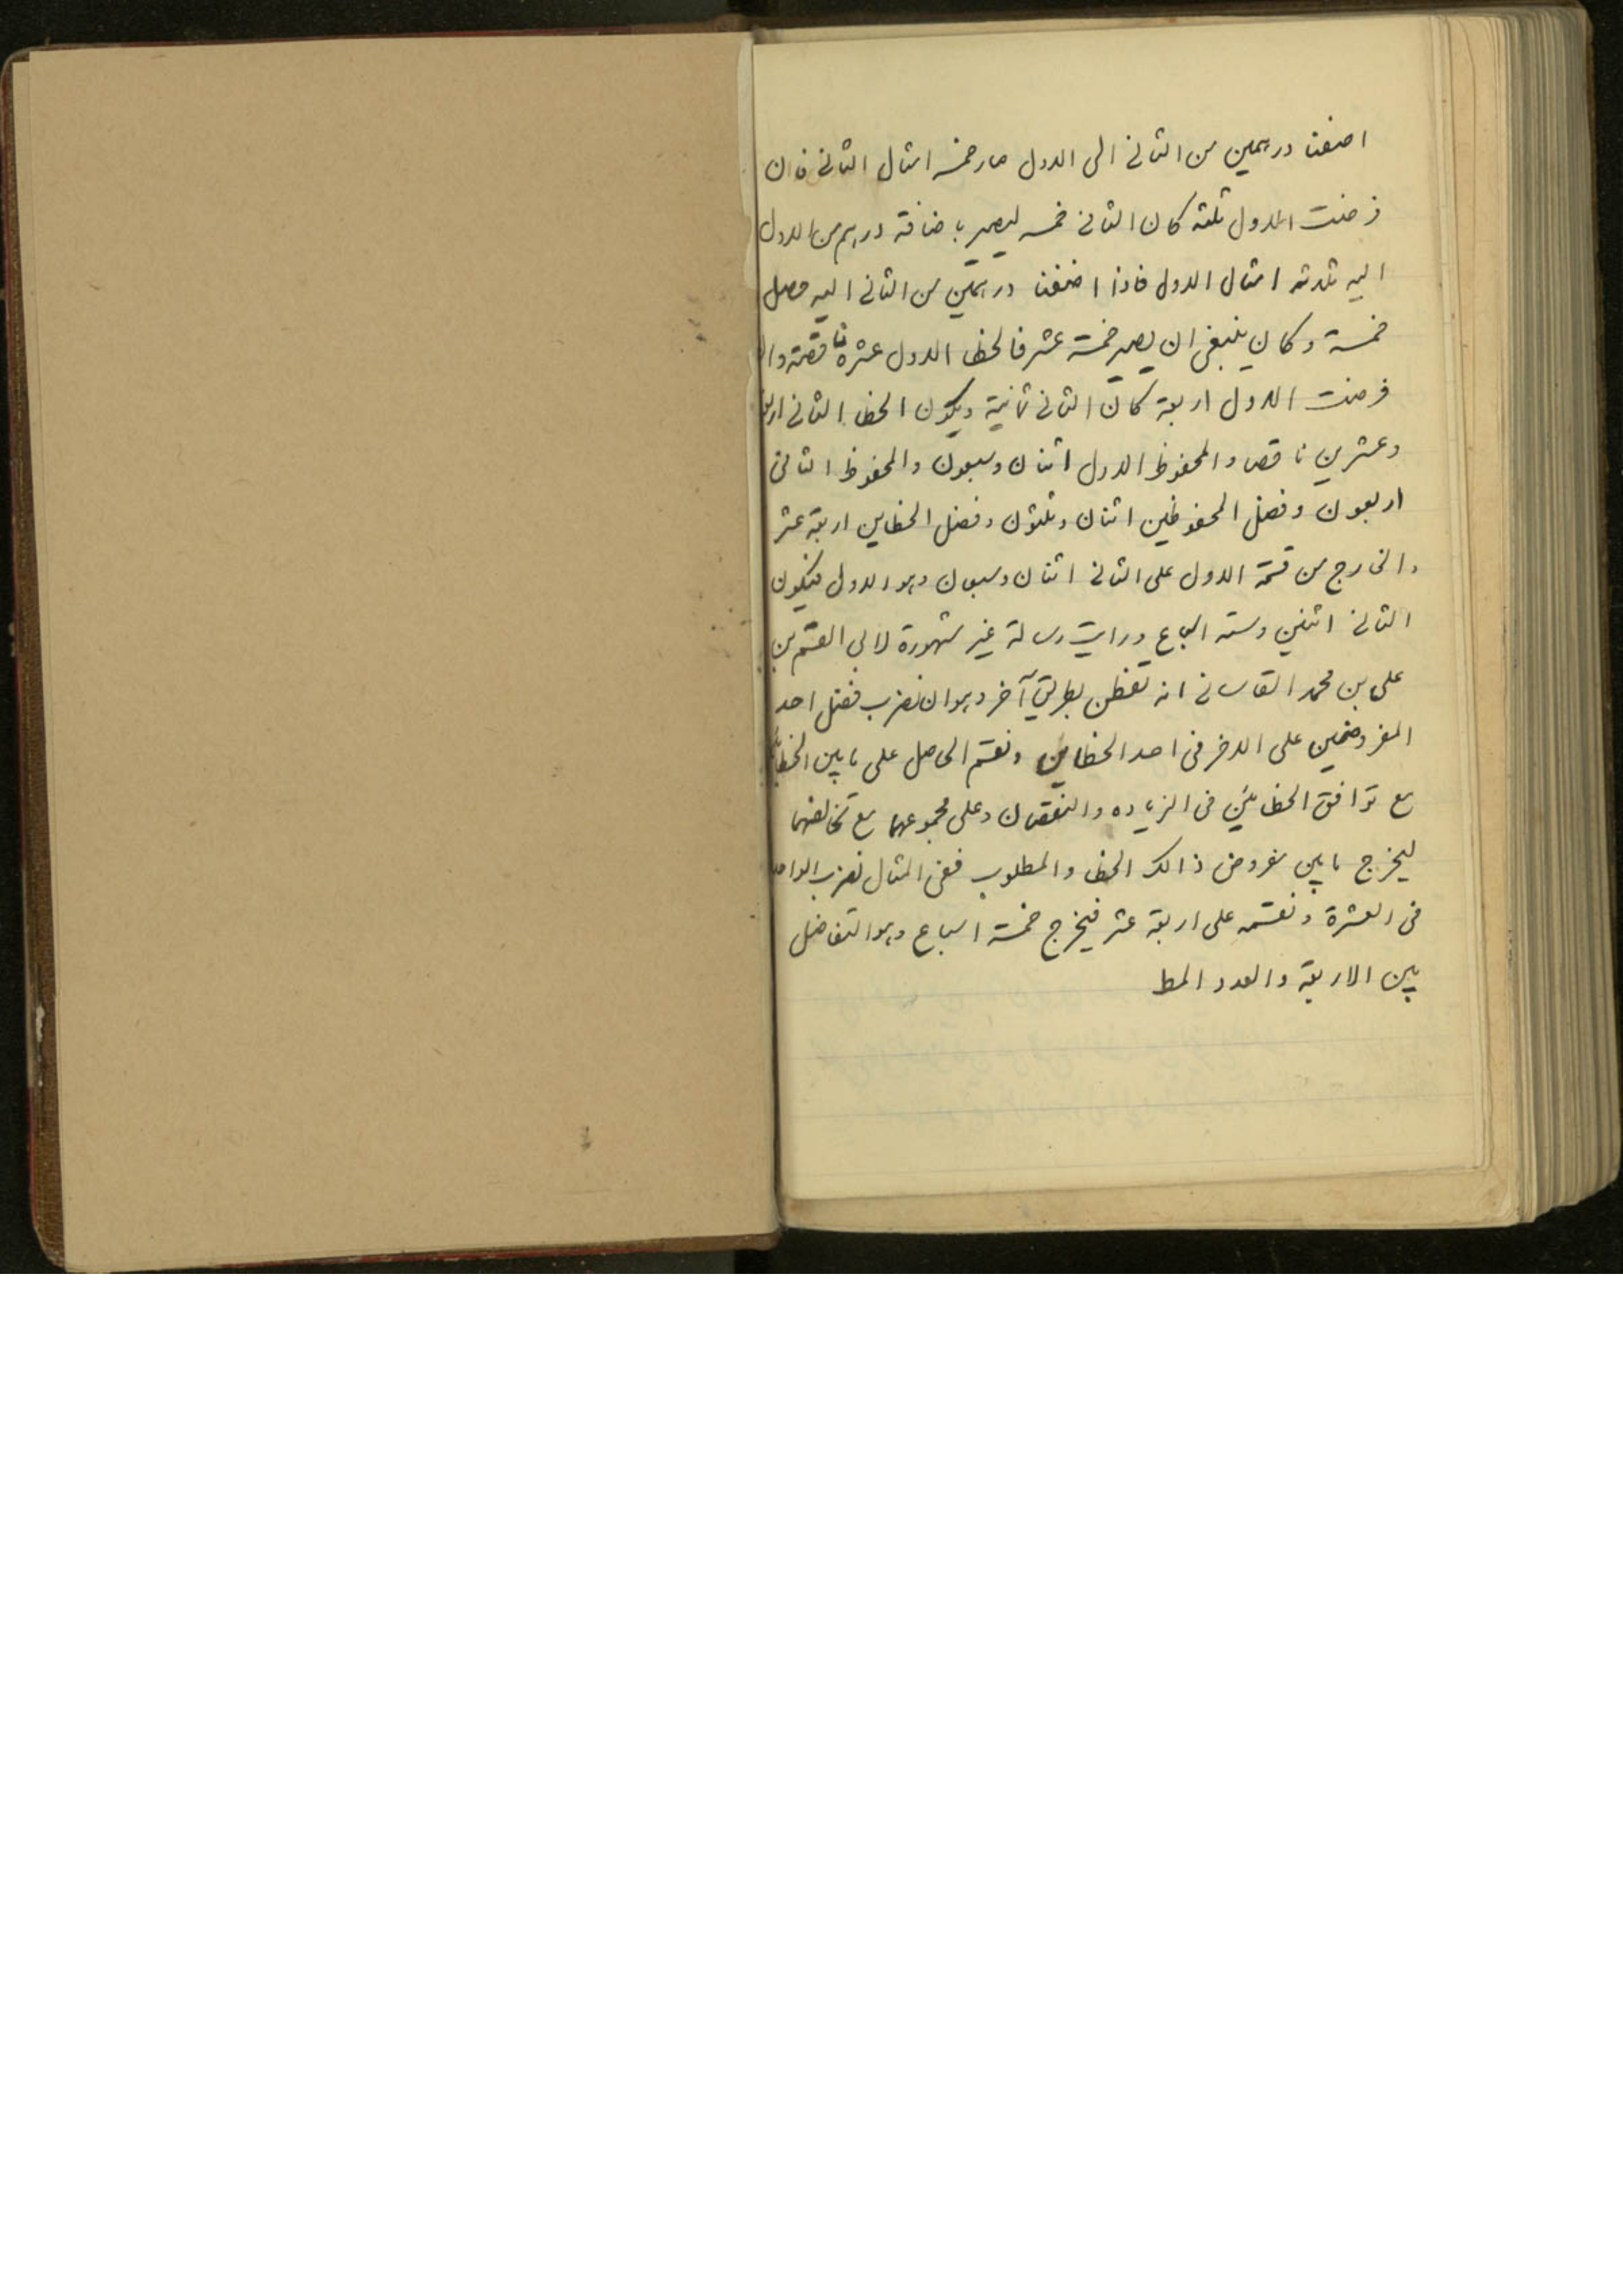 اضفنا درهمين من الثانى الى الاول صار خمسه امثال الثانى فان
فرضت الاول ثلثه كان الثانى خمسه ليصير باضافة درهم من الاول
اليه ثلاثه امثال الاول فاذا اضفنا درهمين من الثانى اليه حصل
خمسة وكان ينبغى ان يصير خمسة عشر فالخطا الاول عشرة ناقصة وان
فرضت الاول اربعة كان الثانى ثمانية ويكون الخطا الثانى اربعة
وعشرين ناقص والمحفوظ الاول اثنان وسبعون والمحفوظ الثانى
اربعون وفضل المحفوظين اثنان وثلثون وفضل الخطاين اربعة عشر
والخارج من قسمة الاول على الثانى اثنان وسبعان وهو الاول فيكون
الثانى اثنين وسته اسباع ورايت رسالة غير مشهورة لابى القسم بن
على بن محمد القاسانى انه تفطن بطريق آخر وهو ان نضرب فضل احد
المفروضين على الاخر فى احد الخطاين ونقسم الحاصل على ما بين الخطاين
مع توافق الخطائين فى الزياده والنقصان وعلى مجموعهما مع تخالفهما
ليخرج ما بين مفروض ذالك الخطا والمطلوب ففى المثال نضرب الواحد
فى العشرة ونقسمه على اربعة عشر فيخرج خمسة اسباع وهو التفاضل
بين الاربعة والعدد المط